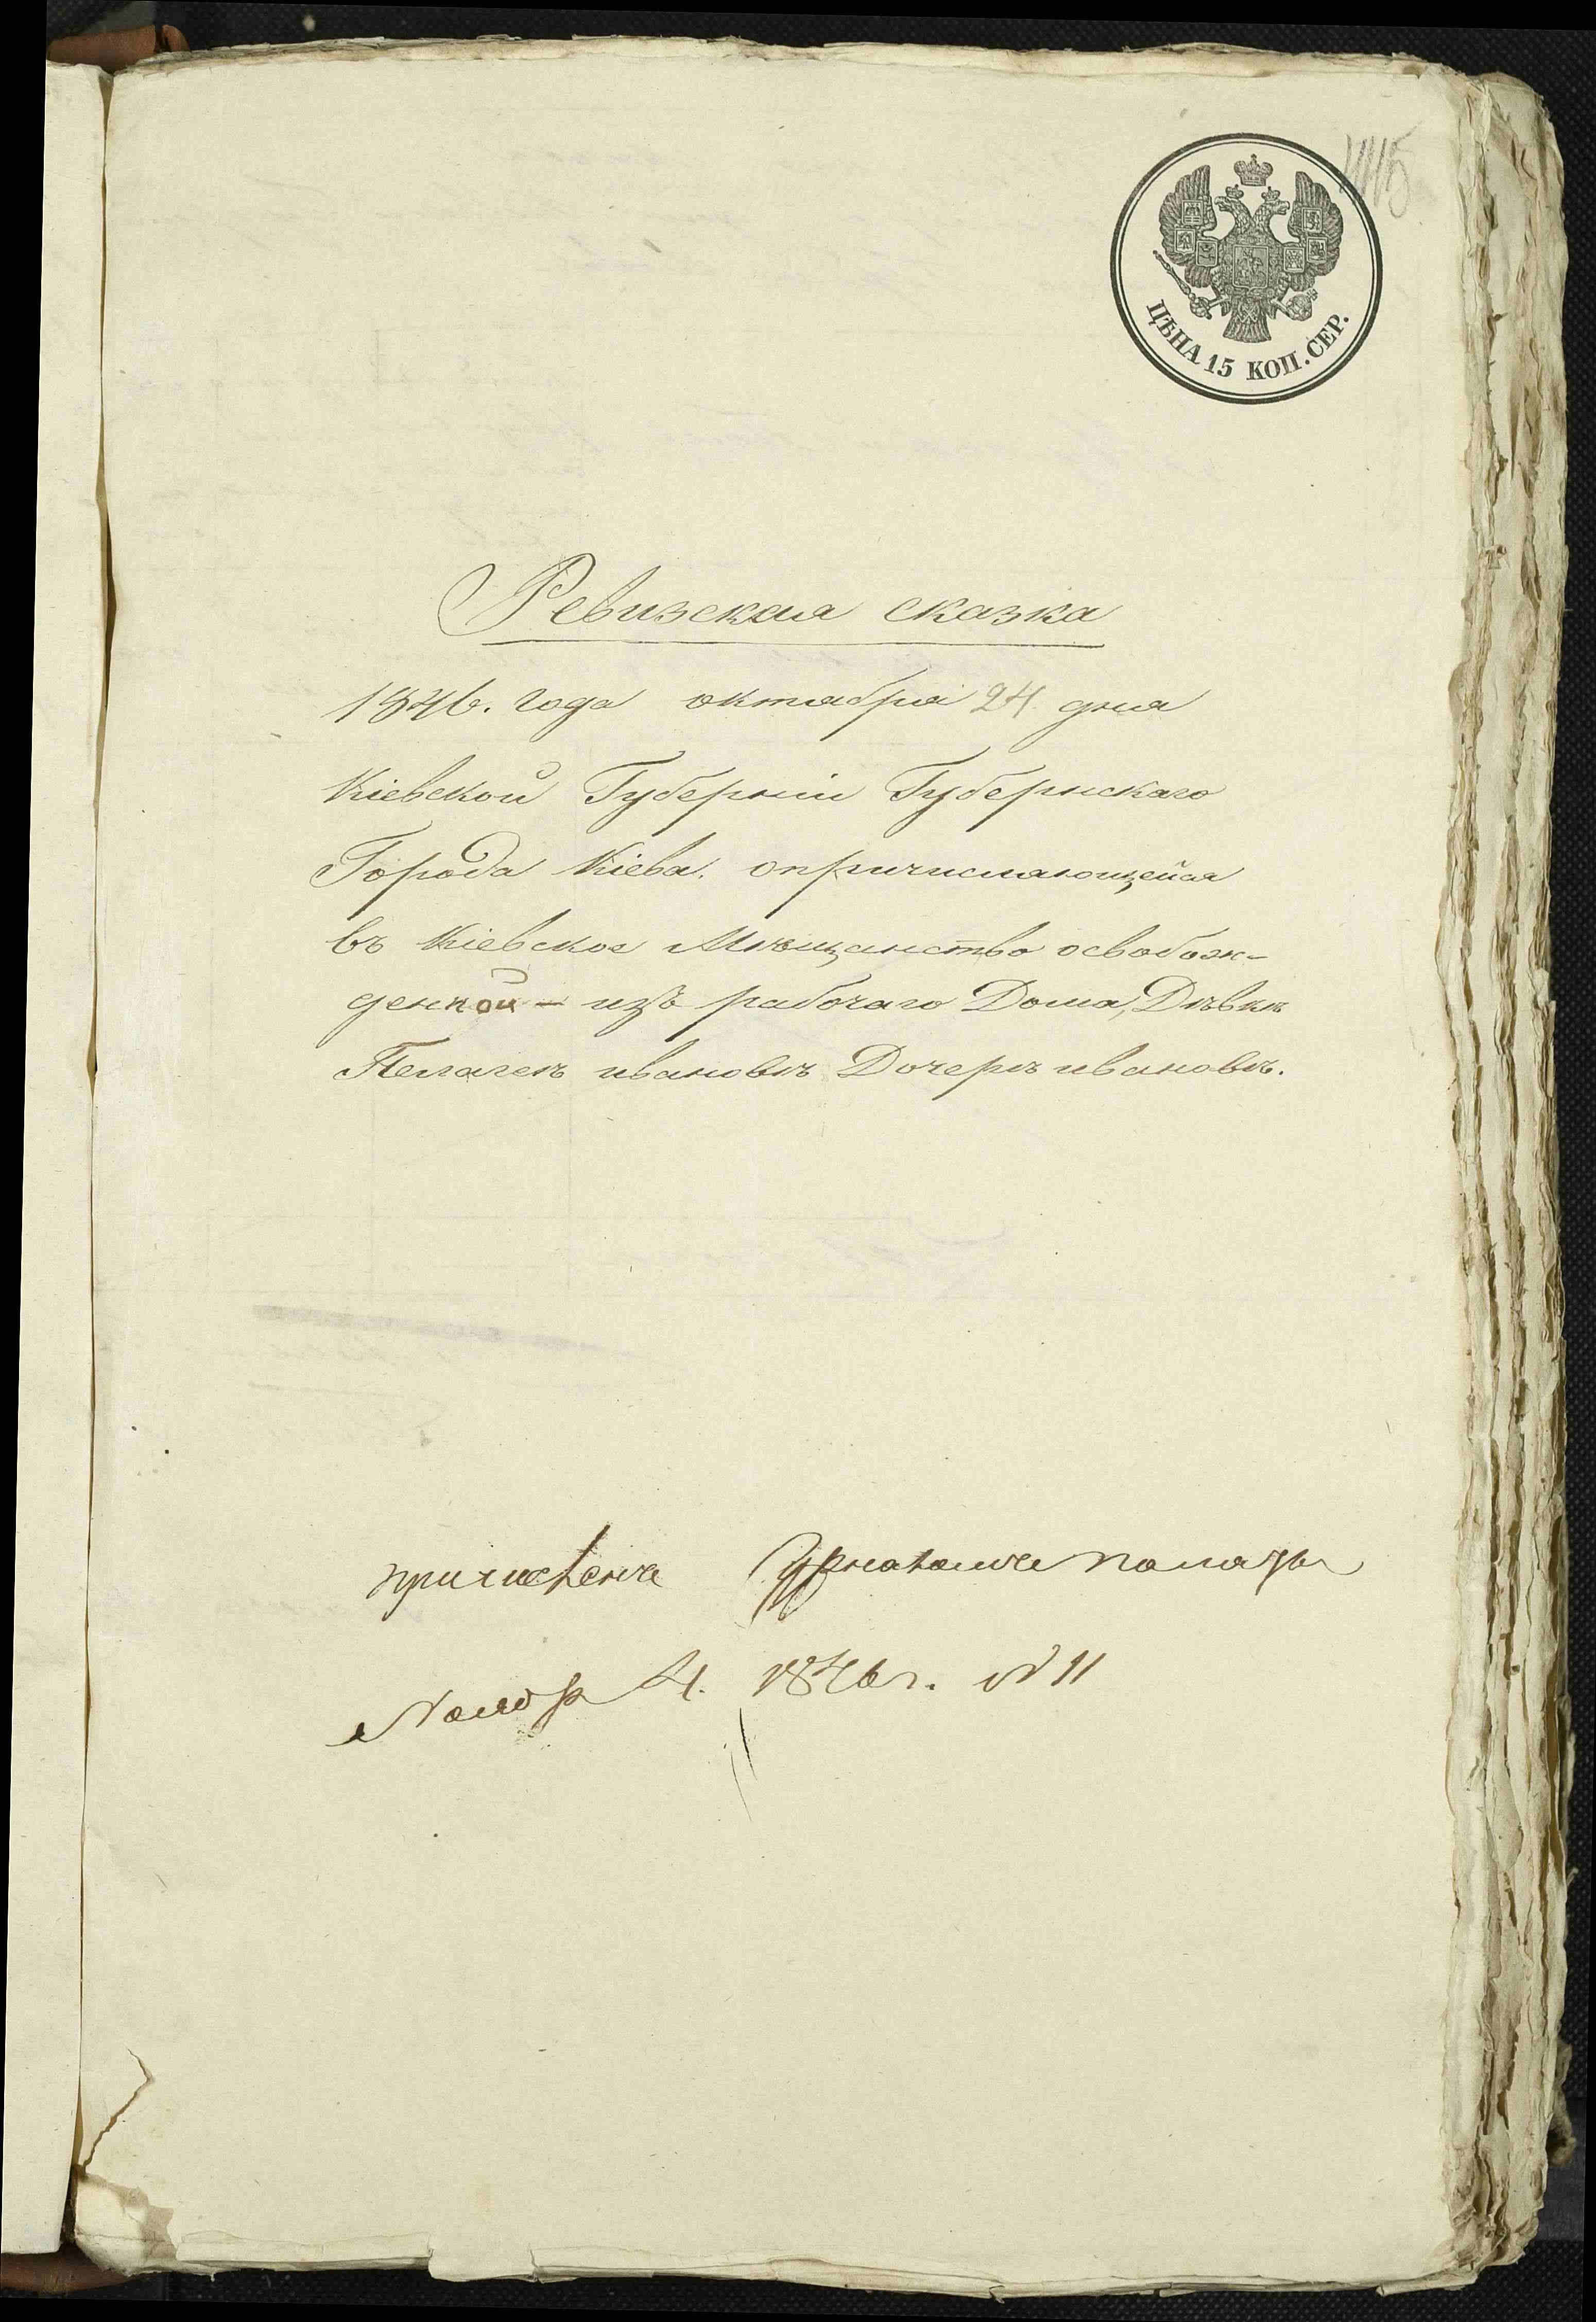 1115
ЦѢНА 15 КОП. СЕР.
Ревизская сказка
1846. года октября 24 дня
Кіевской Губерніи Губернскаго
Города Кіева. опричисляющейся
въ Кіевское Мѣщанство освобож-
денной - изъ рабочаго Дома, Дѣвкѣ
Пелагеѣ ивановѣ Дочерѣ ивановѣ.
палаты
Ноябр 4. 1846 г. № 11